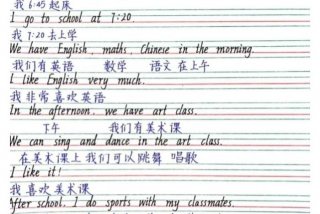 我 6:45 起床
I go to school at 7:20.
我 7:20 去上学
We have English, maths, Chinese in the morning.
我们有英语 数学 语文 在上午
I like English very much.
我 非常 喜欢 英语
In the afternoon, we have art class.
下午 我们有美术课
We can sing and dance in the art class.
在美术课上 我们可以 跳舞 唱歌
I like it!
我 喜欢 美术课
After school, I do sports with my classmates.